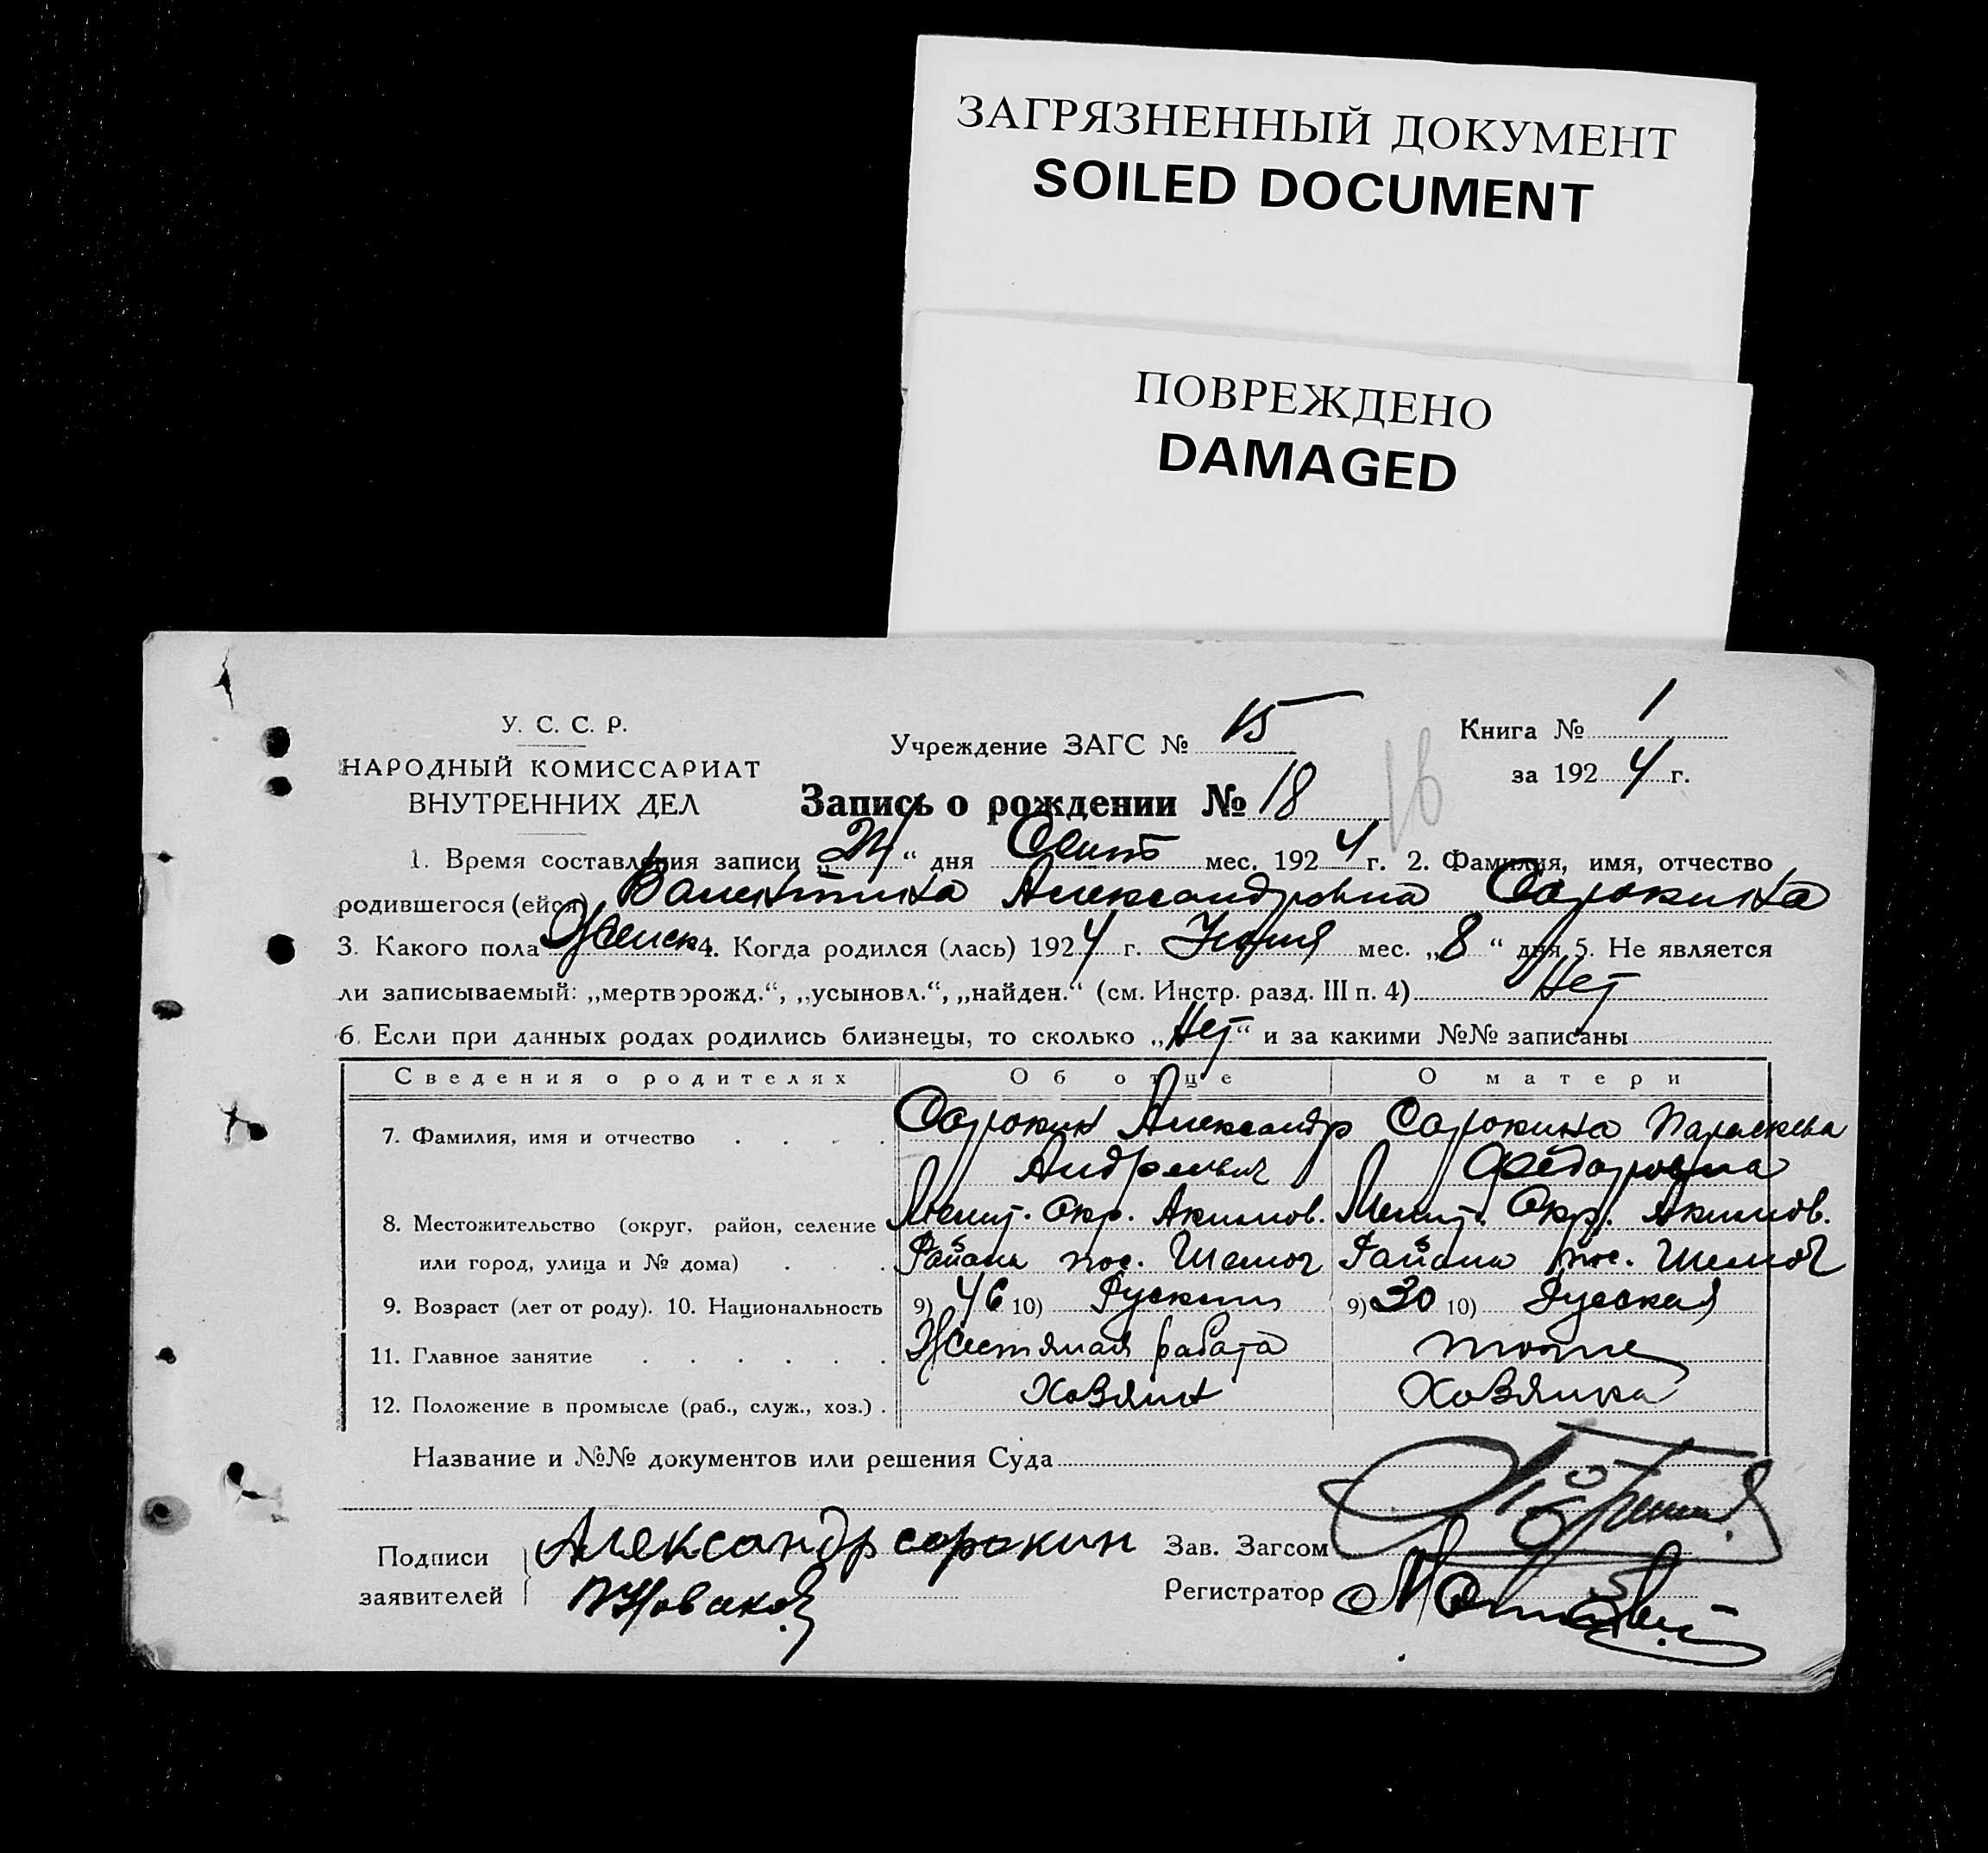 ЗАГРЯЗНЕННЫЙ ДОКУМЕНТ
SOILED DOCUMENT
ПОВРЕЖДЕНО
DAMAGED
У. С. С. Р.
НАРОДНЫЙ КОМИССАРИАТ
ВНУТРЕННИХ ДЕЛ
Учреждение ЗАГС № 15
Книга № 1
за 1924 г.
Запись о рождении № 18
1. Время составления записи „ “ дня Сент мес. 1924 г. 2. Фамилия, имя, отчество
родившегося (ейся) Валентина Александровна Сорокина
3. Какого пола Женск 4. Когда родился (лась) 1924 г. мес. „8“ дня 5. Не является
ли записываемый: „мертворожд.“, „усыновл.“, „найден.“ (см. Инстр. разд. III п. 4) Нет
6. Если при данных родах родились близнецы, то сколько „Нет“ и за какими №№ записаны
Сведения о родителях Об отце О матери
7. Фамилия, имя и отчество Сорокин Александр Сорокина Параскева
Андреевич Федоровна
8. Местожительство (округ, район, селение Мелит. Окр. Акимов. Мелит. Окр. Акимов.
или город, улица и № дома) Района пос. Района пос.
9. Возраст (лет от роду). 10. Национальность 9) 46 10) Русский 9) 30 10) Русская
11. Главное занятие Жестяная работа тоже
12. Положение в промысле (раб., служ., хоз.) Хозяин Хозяйка
Название и №№ документов или решения Суда
Подписи Александр сорокин Зав. Загсом
заявителей Регистратор